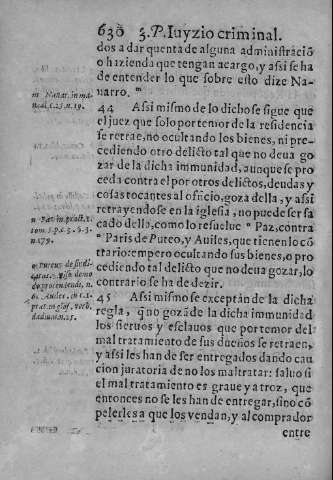 630 3. P. Iuyzio criminal.
dos a dar quenta de alguna administració
o hazienda que tengan acargo, y assi se ha
de entender lo que sobre esto dize Na-
uarro. m
m Nauar. in ma-
nual, c. 25. n. 19.
44 Assi mismo de lo dicho se sigue que
el juez que solo por temor de la residencia
se retrae, no ocultando los bienes, ni pre-
cediendo otro delicto tal que no deua go
zar de la dicha immunidad, aunque se pro
ceda contra el por otros delictos, deudas y
cosas tocantes al oficio, goza della, y assi
retrayendose en la iglesia, no puede ser sa
cado della, como lo resuelue n Paz, contra
o Paris de Puteo, y Auiles, que tienen lo cõ
trario: empero ocultando sus bienes, o pro
cediendo tal delicto que no deua gozar, lo
contrario se ha de dezir.
n Paz in pract. 1.
tom. 5. p. c. 3. §. 3.
n. 179.
45 Assi mismo se exceptán de la dicha
regla, q̃ no gozãde la dicha immunidad
los sieruos y esclauos que por temor del
mal tratamiento de sus dueños se retraen,
y assi les han de ser entregados dando cau
cion juratoria de no los maltratar: saluo si
el mal tratamiento es graue y atroz, que
entonces no se les han de entregar, sino cõ
pelerles a que los vendan, y al comprador
entre